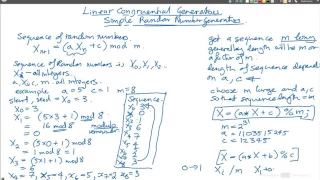 Linear Congruential Generators
Simple Random Number Generator
Sequence of random numbers.
Xn+1 = (a Xn + c) mod m.
Sequence of Random numbers is X0, X1, X2..
- all integers.
a, c, m all integers.
example a = 5 c = 1 m = 8
start, seed = X0 = 3.
X0 = 3
X1 = (5×3 + 1) mod 8
= 16 mod 8
= 0
modulo
X2 = (5×0 + 1) mod 8
= 1 mod 8 = 1
X3 = (5×1 + 1) mod 8
= 6
X4 = 7, X5 = 4, X6 = 5, X7 = 2 X8 = 3
Sequence
get a sequence m long
general length will be m or
a factor of m.
length of sequence depends
on a, c &
choose m large and a, c
so that sequence length = m
X = (aX + c) % m;
m = 2^31
a = 1103515245
c = 12345
X = (aX + b) % c
0→1 X1 / m X1÷